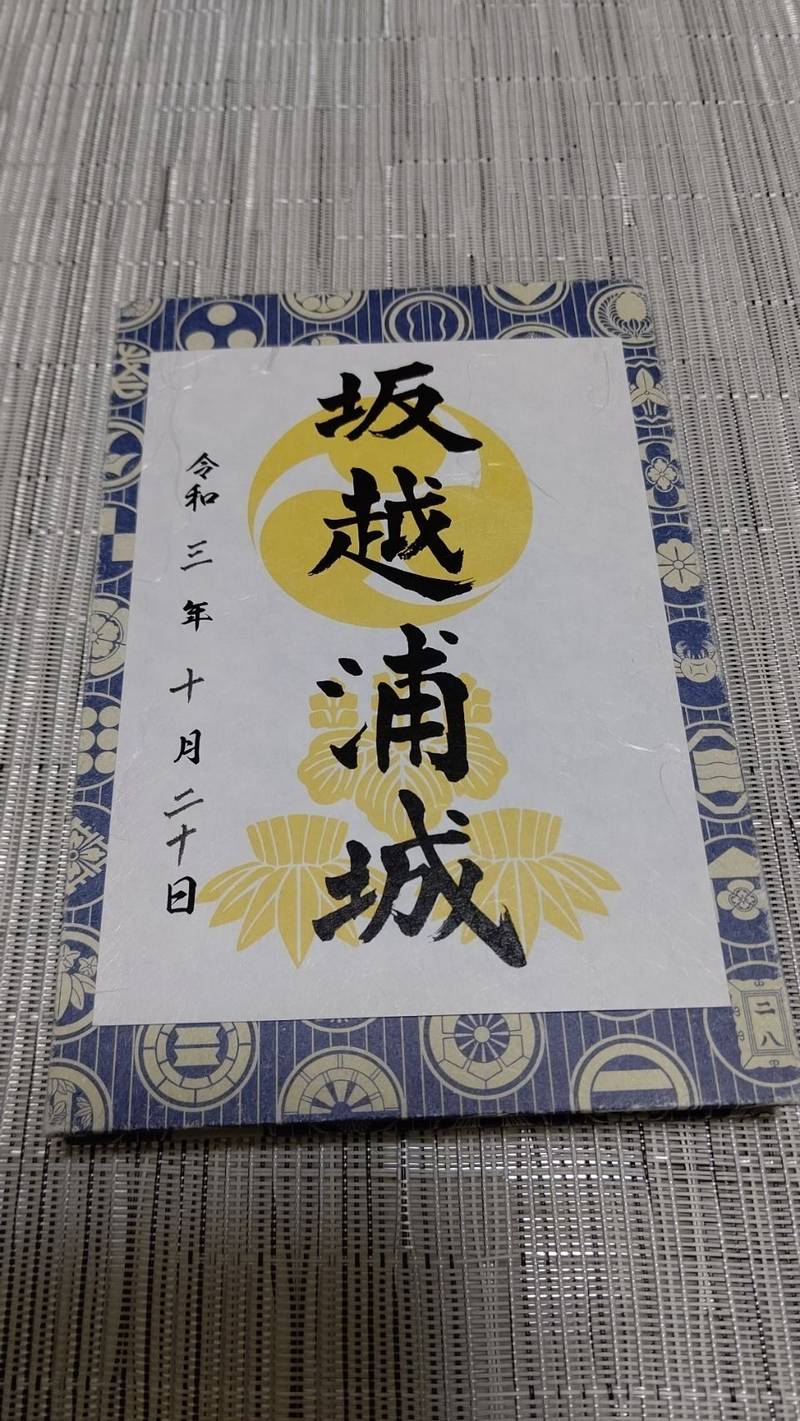 坂越浦城
令和三年十月二十日
二八